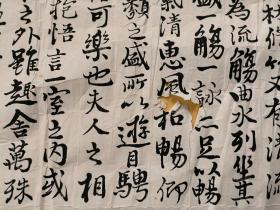 為流觴曲水列坐其
盛一觴一詠亦足以暢
氣清惠風和暢仰
類之盛所以遊目騁
可樂也夫人之相
抱悟言一室之内或
之外雖趣舍萬殊